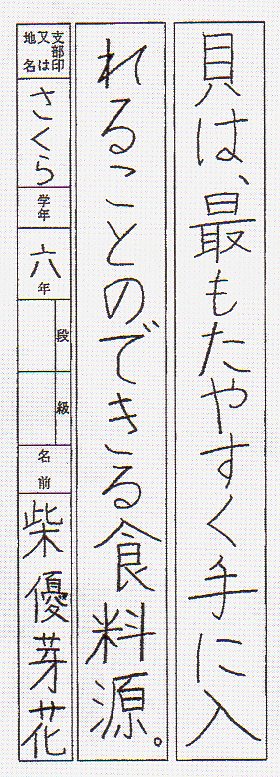 貝は、最もたやすく手に入
れることのできる食料源。
支部印
又は
地名
さくら
学年
六年
段
級
名前
柴優芽花